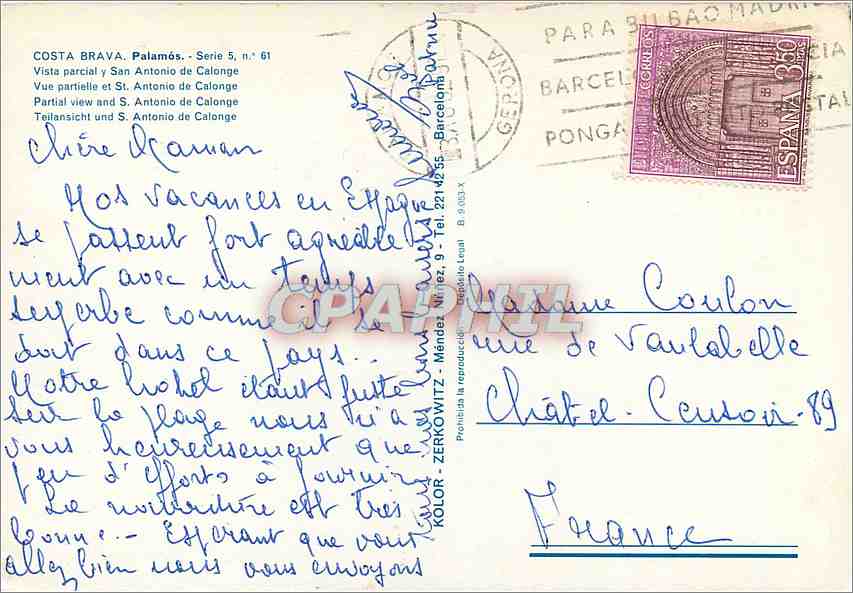 COSTA BRAVA. Palamós. - Serie 5, n.° 61
Vista parcial y San Antonio de Calonge
Vue partielle et St. Antonio de Calonge
Partial view and S. Antonio de Calonge
Teilansicht und S. Antonio de Calonge
Chère Maman
Nos vacances en Espagne
se passent fort agréable
ment avec un temps
superbe comme il se
doit dans ce pays..
Notre hotel étant juste
sur la plage nous n'a
vons heureusement que
peu d'efforts à fournir
La nourriture est très
bonne.- Espérant que vous
allez bien nous vous envoyons
tous nos bons baisers
KOLOR - ZERKOWITZ - Méndez Núñez, 9 - Tel. 221 42 55 Barcelona
Prohibida la reproducción Depósito Legal B. 9.053-X
GERONA
PARA BILBAO MADRI
BARCEL CIA
PONGA TAL
CORREOS
ESPAÑA 3,50
Madame Coulon
rue de Vaulabelle
Châtel-Censoir-89
France
CPAPHIL